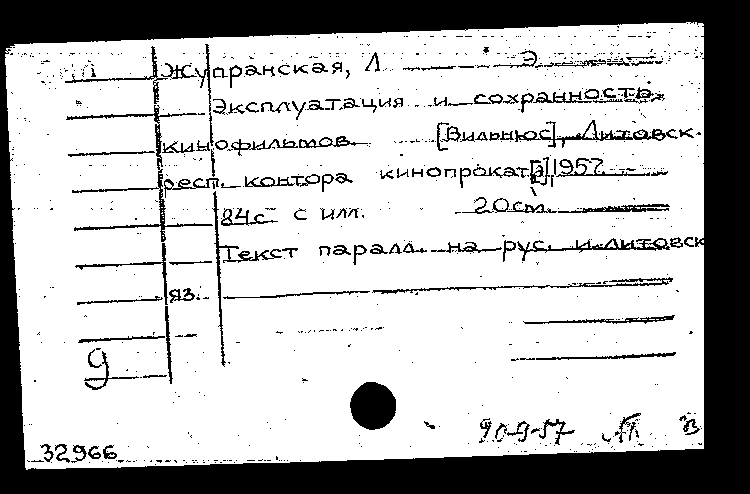 Жупранская, Л Э
Эксплуатация и сохранность
кинофильмов. [Вильнюс], Литовск.
респ. контора кинопроката], 1957
84с с илл. 20см.
Текст паралл. на рус. и литовск
яз.
9
90-9-57
32966